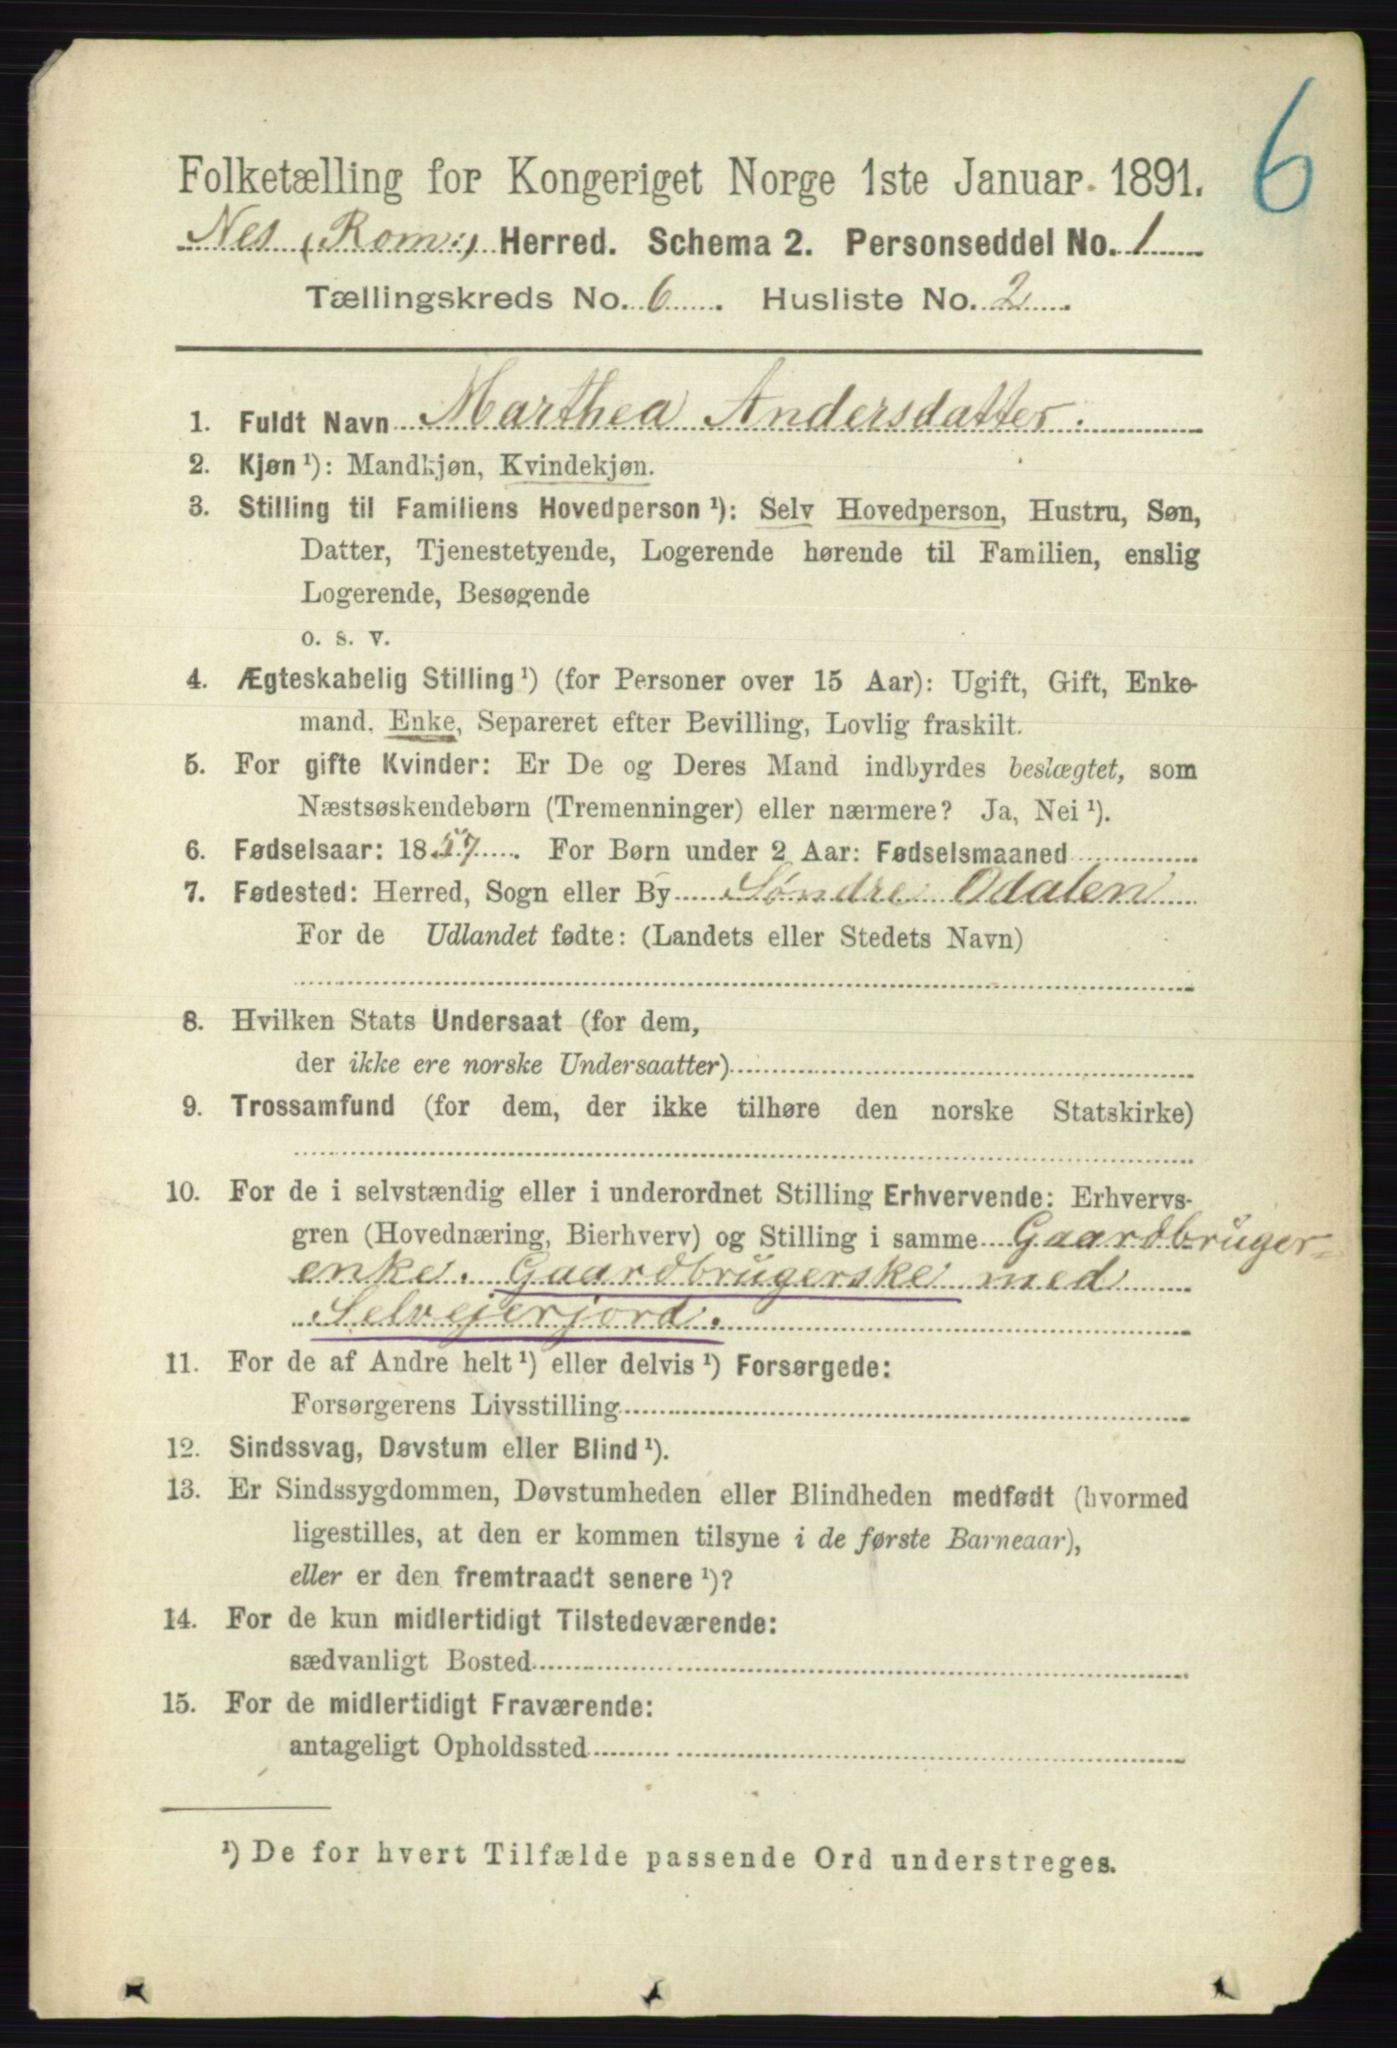 6
Folketælling for Kongeriget Norge 1ste Januar 1891.
Nes (Rom:) Herred. Schema 2. Personseddel No. 1
Tællingskreds No. 6. Husliste No. 2.
1. Fuldt Navn Marthea Andersdatter.
2. Kjøn ¹): Mandkjøn, Kvindekjøn.
3. Stilling til Familiens Hovedperson ¹): Selv Hovedperson, Hustru, Søn,
Datter, Tjenestetyende, Logerende hørende til Familien, enslig
Logerende, Besøgende
o. s. v.
4. Ægteskabelig Stilling ¹) (for Personer over 15 Aar): Ugift, Gift, Enke-
mand, Enke, Separeret efter Bevilling, Lovlig fraskilt.
5. For gifte Kvinder: Er De og Deres Mand indbyrdes beslægtet, som
Næstsøskendebørn (Tremenninger) eller nærmere? Ja, Nei ¹).
6. Fødselsaar: 1857. For Børn under 2 Aar: Fødselsmaaned
7. Fødested: Herred, Sogn eller By Søndre Odalen
For de Udlandet fødte: (Landets eller Stedets Navn)
8. Hvilken Stats Undersaat (for dem,
der ikke ere norske Undersaatter)
9. Trossamfund (for dem, der ikke tilhøre den norske Statskirke)
10. For de i selvstændig eller i underordnet Stilling Erhvervende: Erhvervs-
gren (Hovednæring, Bierhverv) og Stilling i samme Gaardbruger-
enke. Gaardbrugerske med
Selvejerjord.
11. For de af Andre helt ¹) eller delvis ¹) Forsørgede:
Forsørgerens Livsstilling
12. Sindssvag, Døvstum eller Blind ¹).
13. Er Sindssygdommen, Døvstumheden eller Blindheden medfødt (hvormed
ligestilles, at den er kommen tilsyne i de første Barneaar),
eller er den fremtraadt senere ¹)?
14. For de kun midlertidigt Tilstedeværende:
sædvanligt Bosted
15. For de midlertidigt Fraværende:
antageligt Opholdssted
¹) De for hvert Tilfælde passende Ord understreges.